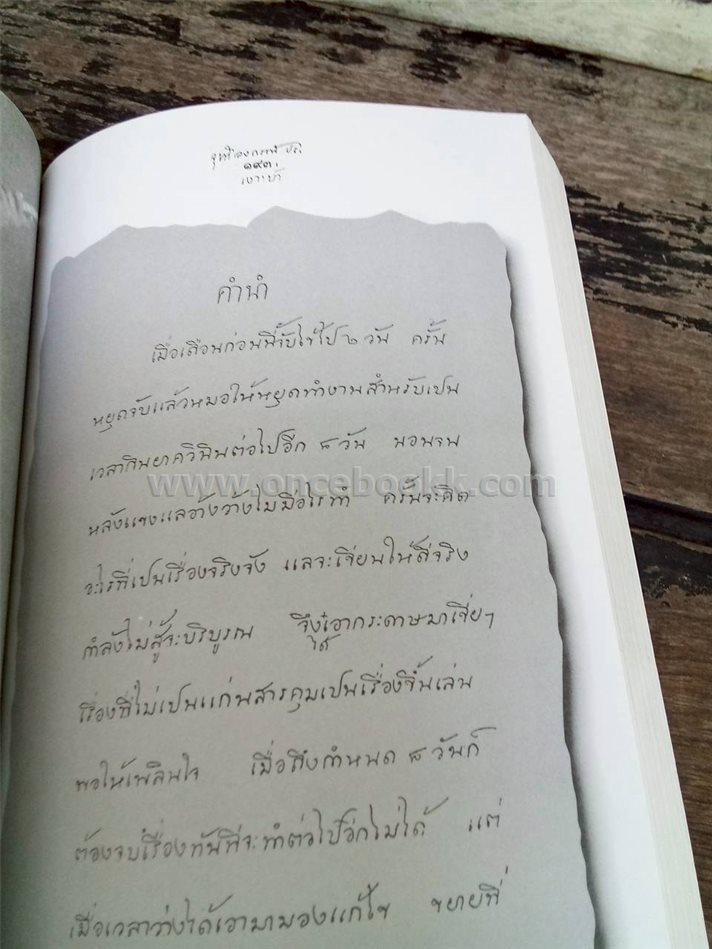 ๑๙๓
เงาะป่า
คำนำ
เมื่อเดือนก่อนนี้จับไข้ไป ๒ วัน ครั้น
หยุดจับแล้วหมอให้หยุดทำงานสำหรับเปน
เวลากินยาควินินต่อไปอีก ๘ วัน นอนจน
www.oncebookk.com
หลังแขงแลอ้างว้างไม่มีอะไรทำ ครั้นจะคิด
อะไรที่เปนเรื่องจริงจัง แลจะเขียนให้ดีจริง
กำลังไม่สู้จะบริบูรณ จึงได้เอากระดาษมาเขียน
เรื่องที่ไม่เปนแก่นสารคุมเปนเรื่องขึ้นเล่น
พอให้เพลินใจ เมื่อถึงกำหนด ๘ วันก็
ต้องจบเรื่องทันทีจะทำต่อไปอีกไม่ได้ แต่
เมื่อเวลาว่างได้เอามามองแก้ไข ขยายที่